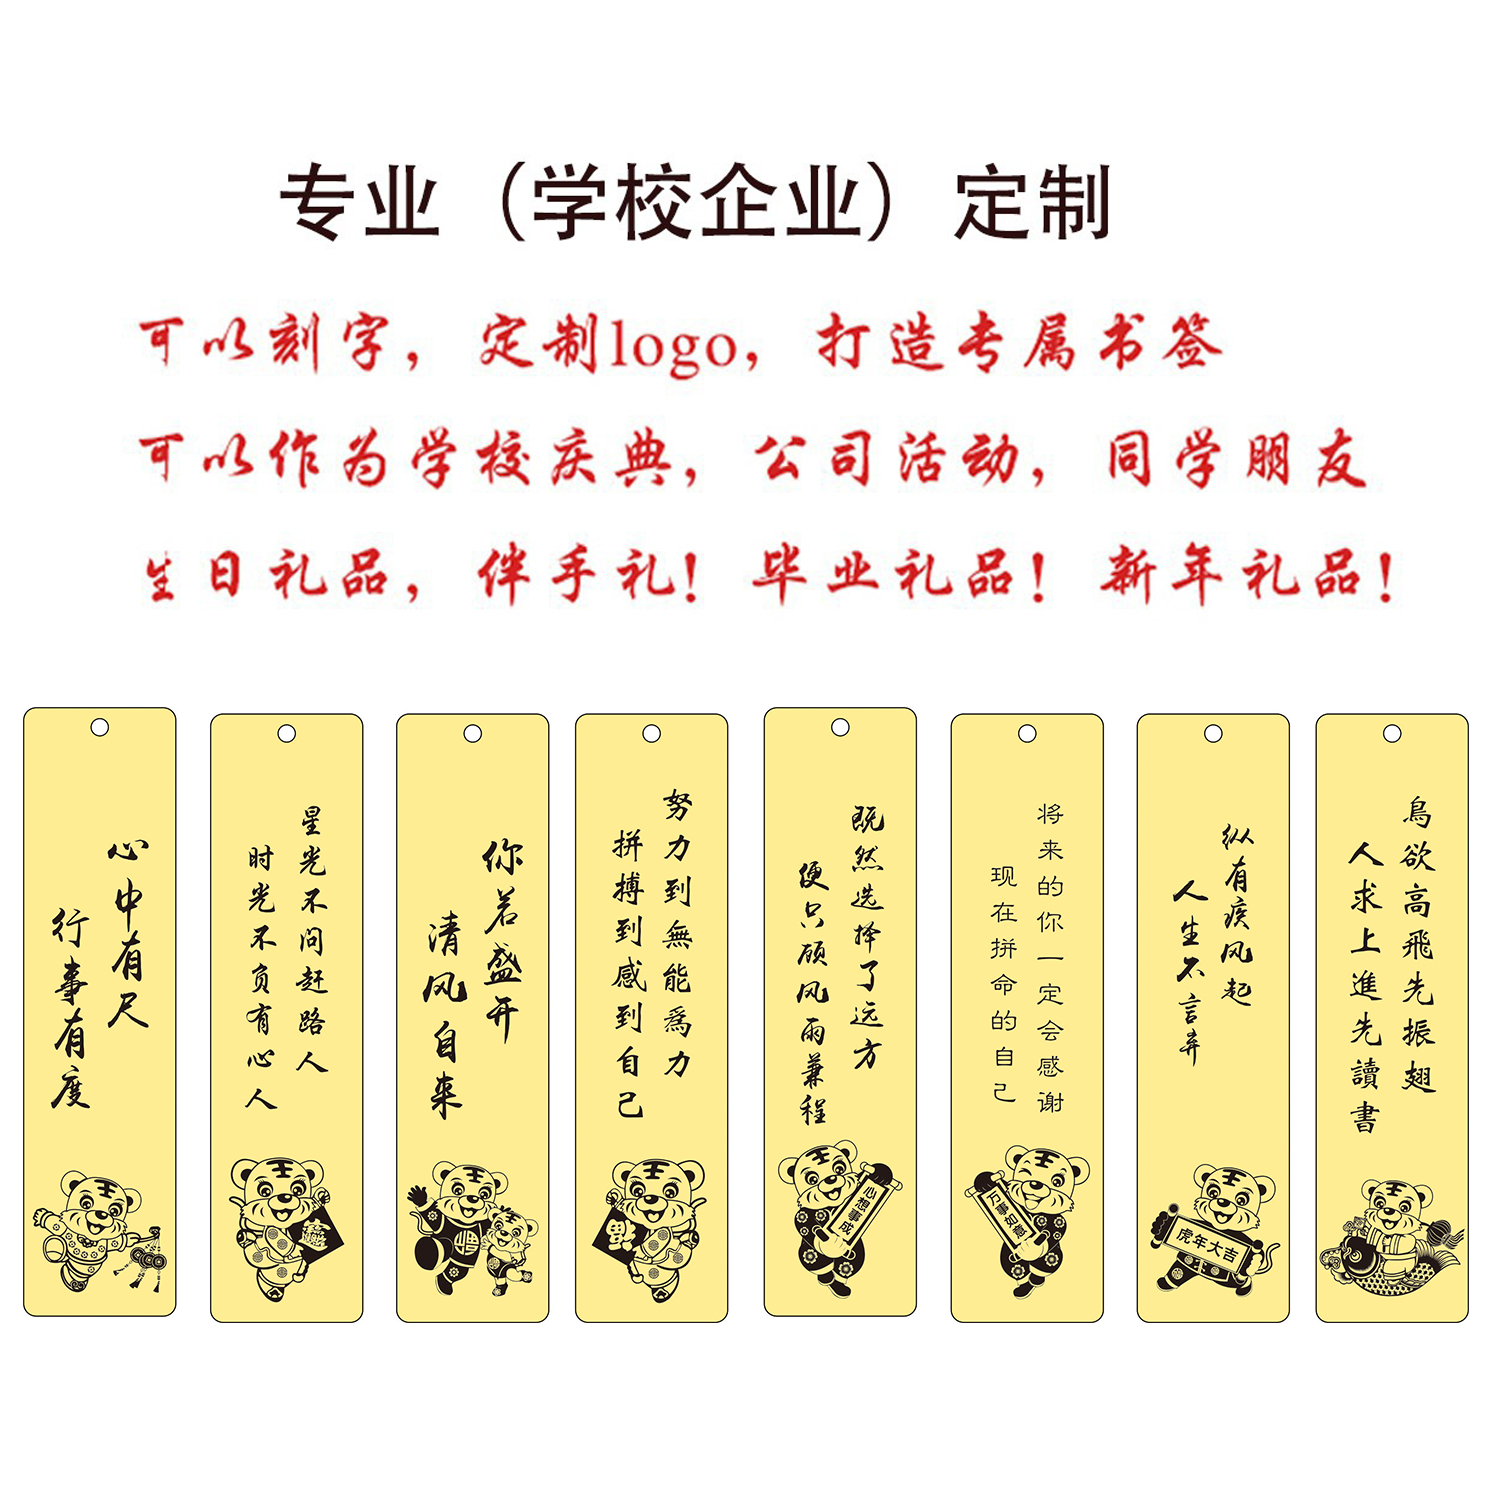 专业（学校企业）定制
可以刻字，定制logo，打造专属书签
可以作为学校庆典，公司活动，同学朋友
生日礼品，伴手礼！毕业礼品！新年礼品！
心中有尺
行事有度
星光不问赶路人
时光不负有心人
你若盛开
清风自来
努力到無能為力
拼搏到感到自己
既然选择了远方
便只顾风雨兼程
心想事成
将来的你一定会感谢
现在拼命的自己
万事如意
纵有疾风起
人生不言弃
虎年大吉
鳥欲高飛先振翅
人求上進先讀書